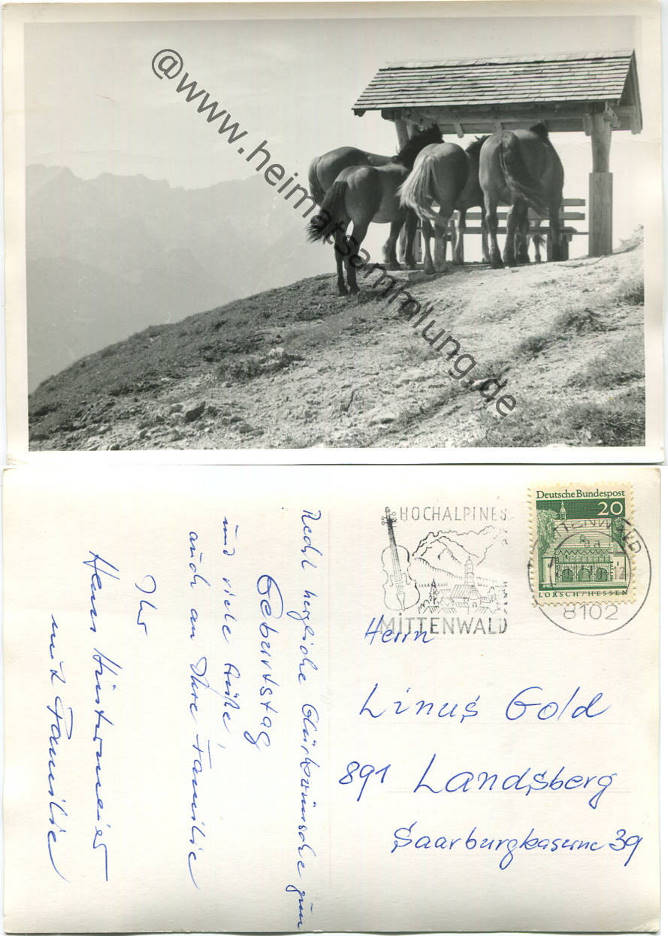 @www.heimatsammlung.de
HOCHALPINES
MITTENWALD
Deutsche Bundespost
20
LORSCH/HESSEN
8102
Herrn
Linus Gold
891 Landsberg
Saarburgkaserne 39
Recht herzliche Glückwünsche zum
Geburtstag
und viele Grüße
auch an Ihre Familie
Ihr
Hintermeier
mit Familie